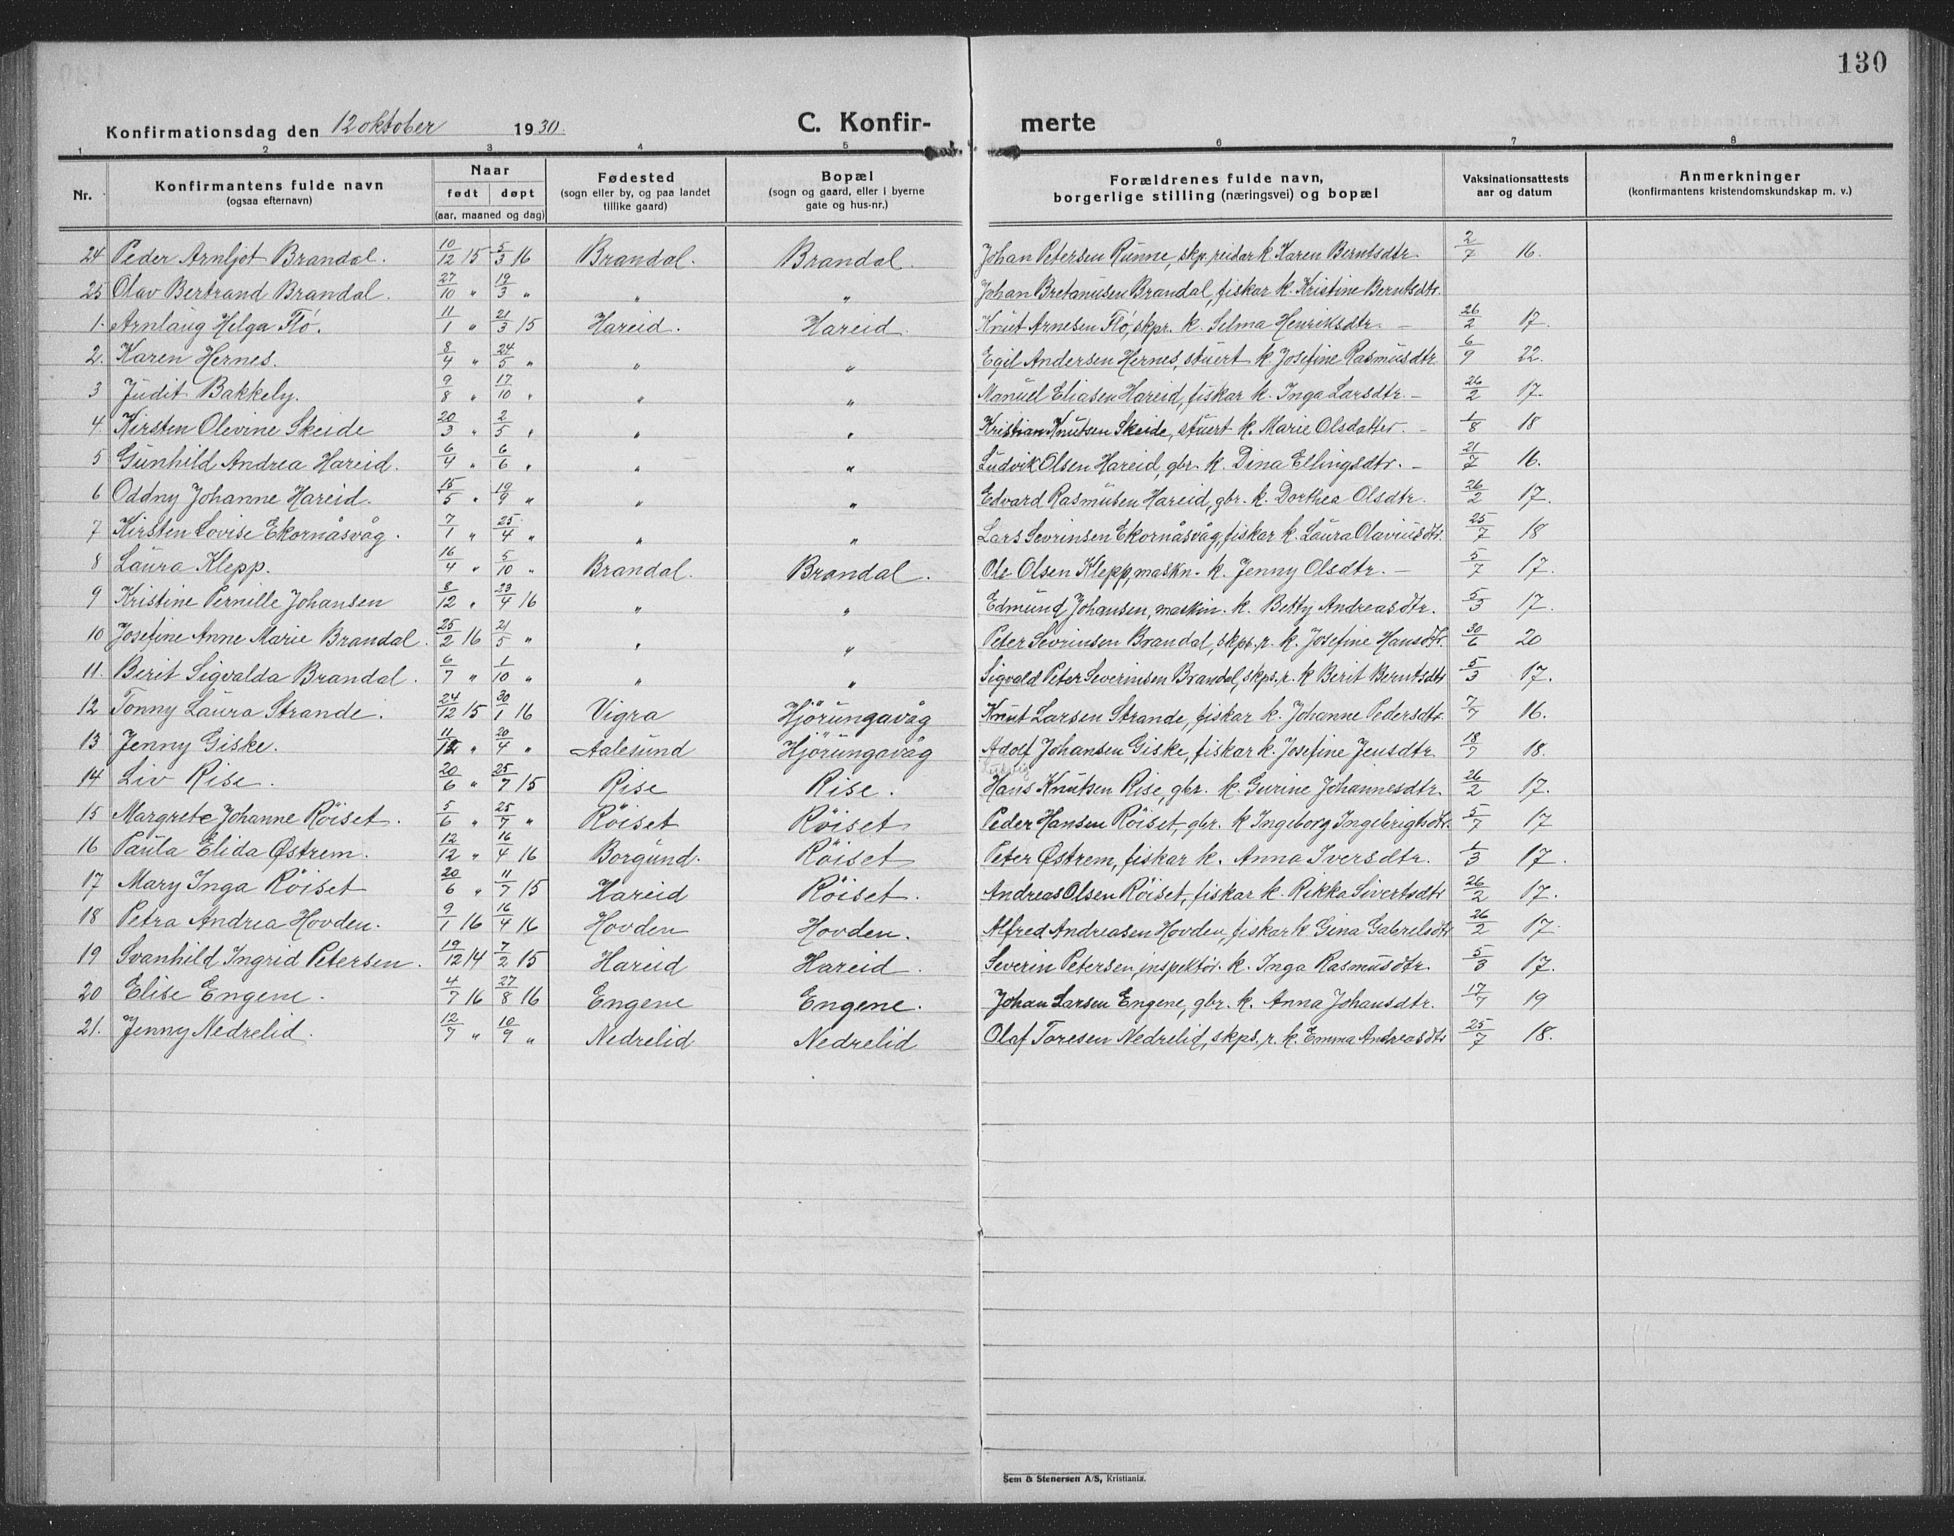 130
Konfirmationsdag den 12 oktober 1930. C. Konfir- merte
1 2 3 4 5 6 7 8
Nr. | Konfirmantens fulde navn (ogsaa efternavn) | Naar født døpt (aar, maaned og dag) | Fødested (sogn eller by, og paa landet tillike gaard) | Bopæl (sogn og gaard, eller i byerne gate og hus-nr.) | Forældrenes fulde navn, borgerlige stilling (næringsvei) og bopæl | Vaksinationsattests aar og datum | Anmerkninger (konfirmantens kristendomskundskap m. v.)
24 Peder Arnljot Brandal. 10/12 15 5/3 16 Brandal. Brandal. Johan Petersen Runne, skp, reidar k. Karen Berntsdtr. 2/7 16.
25 Olav Bertrand Brandal. 27/10 " 19/3 " " " Johan Bretanusen Brandal, fiskar k. Kristine Berntsdtr.
1. Arnlaug Helga Flö. 11/1 " 21/3 15 Hareid. Hareid. Knut Arnesen Flö, skpr. k. Selma Henriksdtr. – 26/2 17.
2. Karen Hernes. 8/4 " 24/5 " " " Egil Andersen Hernes, stuert k. Josefine Rasmusdtr. 6/9 22.
3 Judit Bakkely. 9/8 " 17/10 " " " Manuel Eliasen Hareid, fiskar k. Inga Larsdtr. – 26/2 17.
4. Kirsten Olevine Skeide 20/3 " 2/5 " " " Kristian Knutsen Skeide, stuert k. Marie Olsdatter. – 1/8 18
5 Gunhild Andrea Hareid. 6/4 " 6/6 " " " Ludvik Olsen Hareid, gbr. k. Dina Ellingsdtr. – 21/7 16.
6 Oddny Johanne Hareid. 15/5 " 19/9 " " " Edvard Rasmusen Hareid, gbr. k. Dorthea Olsdtr. 26/2 17.
7 Kirsten Lovise Ekornåsvåg. 7/1 " 25/4 " " " Lars Sevrinsen Ekornåsvåg, fiskar k. Laura Olaviusdtr. 25/7 18
8 Laura Klepp. 16/4 " 5/10 " Brandal. Brandal. Ole Olsen Klepp, maskn. k. Jenny Olsdtr. – 5/7 17.
9 Kristine Pernille Johansen 8/12 " 23/4 16 " " Edmund Johansen, maskin. k. Betty Andreasdtr. 5/3 17.
10 Josefine Anne Marie Brandal. 25/2 16 21/5 " " " Peter Sevrinsen Brandal, skps. r. k. Josefine Hansdtr. 30/6 20
11. Berit Sigvalda Brandal. 6/7 " 1/10 " " " Sigvald Peter Severinsen Brandal, skps. r. k Berit Berntsdtr 5/3 17.
12 Tonny Laura Strande. 24/12 15 30/1 16 Vigra Hjörungavåg Knut Larsen Strande, fiskar k. Johanne Pedersdtr. 7/7 16.
13 Jenny Giske. 11/12 " 20/4 " Aalesund Hjörungavåg Adolf Johansen Giske, fiskar k. Josefine Jensdtr. 18/7 18.
14 Liv Rise. 20/6 " 25/7 15 Rise Rise. Hans Knutsen Rise, gbr. k. Gurine Johannesdtr. 26/2 17.
15 Margrete Johanne Röiset. 5/6 " 25/7 " Röiset Röiset Peder Hansen Röiset, gbr. k Ingeborg Ingebrigtsdtr. 5/7 17
16 Paula Elida Østrem. 12/12 " 16/4 16 Borgund. Röiset Peter Østrem, fiskar k. Anna Iversdtr. 1/3 17.
17 Mary Inga Röiset 20/6 " 11/7 15 Hareid Röiset. Andreas Olsen Röiset, fiskar k. Rikka Sivertsdtr 26/2 17.
18 Petra Andrea Hovden. 9/1 16 16/4 16 Hovden Hovden. Alfred Andreasen Hovden, fiskar k. Gina Gabrielsdtr 26/2 17.
19 Svanhild Ingrid Petersen. 19/12 14 7/2 15 Hareid Hareid. Severin Petersen, inspektör. k. Inga Rasmusdtr. 5/3 17.
20 Elise Engene. 4/7 16 27/8 16 Engene Engene. Johan Larsen Engene, gbr. k. Anna Johansdtr. 17/7 19
21. Jenny Nedrelid. 12/7 " 10/9 " Nedrelid Nedrelid Olaf Toresen Nedrelid, skps. r. k. Emma Andreasdtr 25/7 18.
Sem & Stenersen A/S, Kristiania.